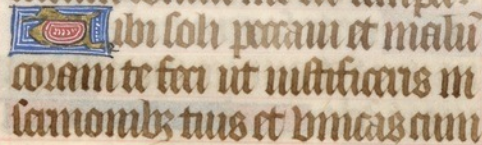 Tibi soli peccaui et malū
coram te feci ut iustificeris in
sermonibꝫ tuis et vincas cum